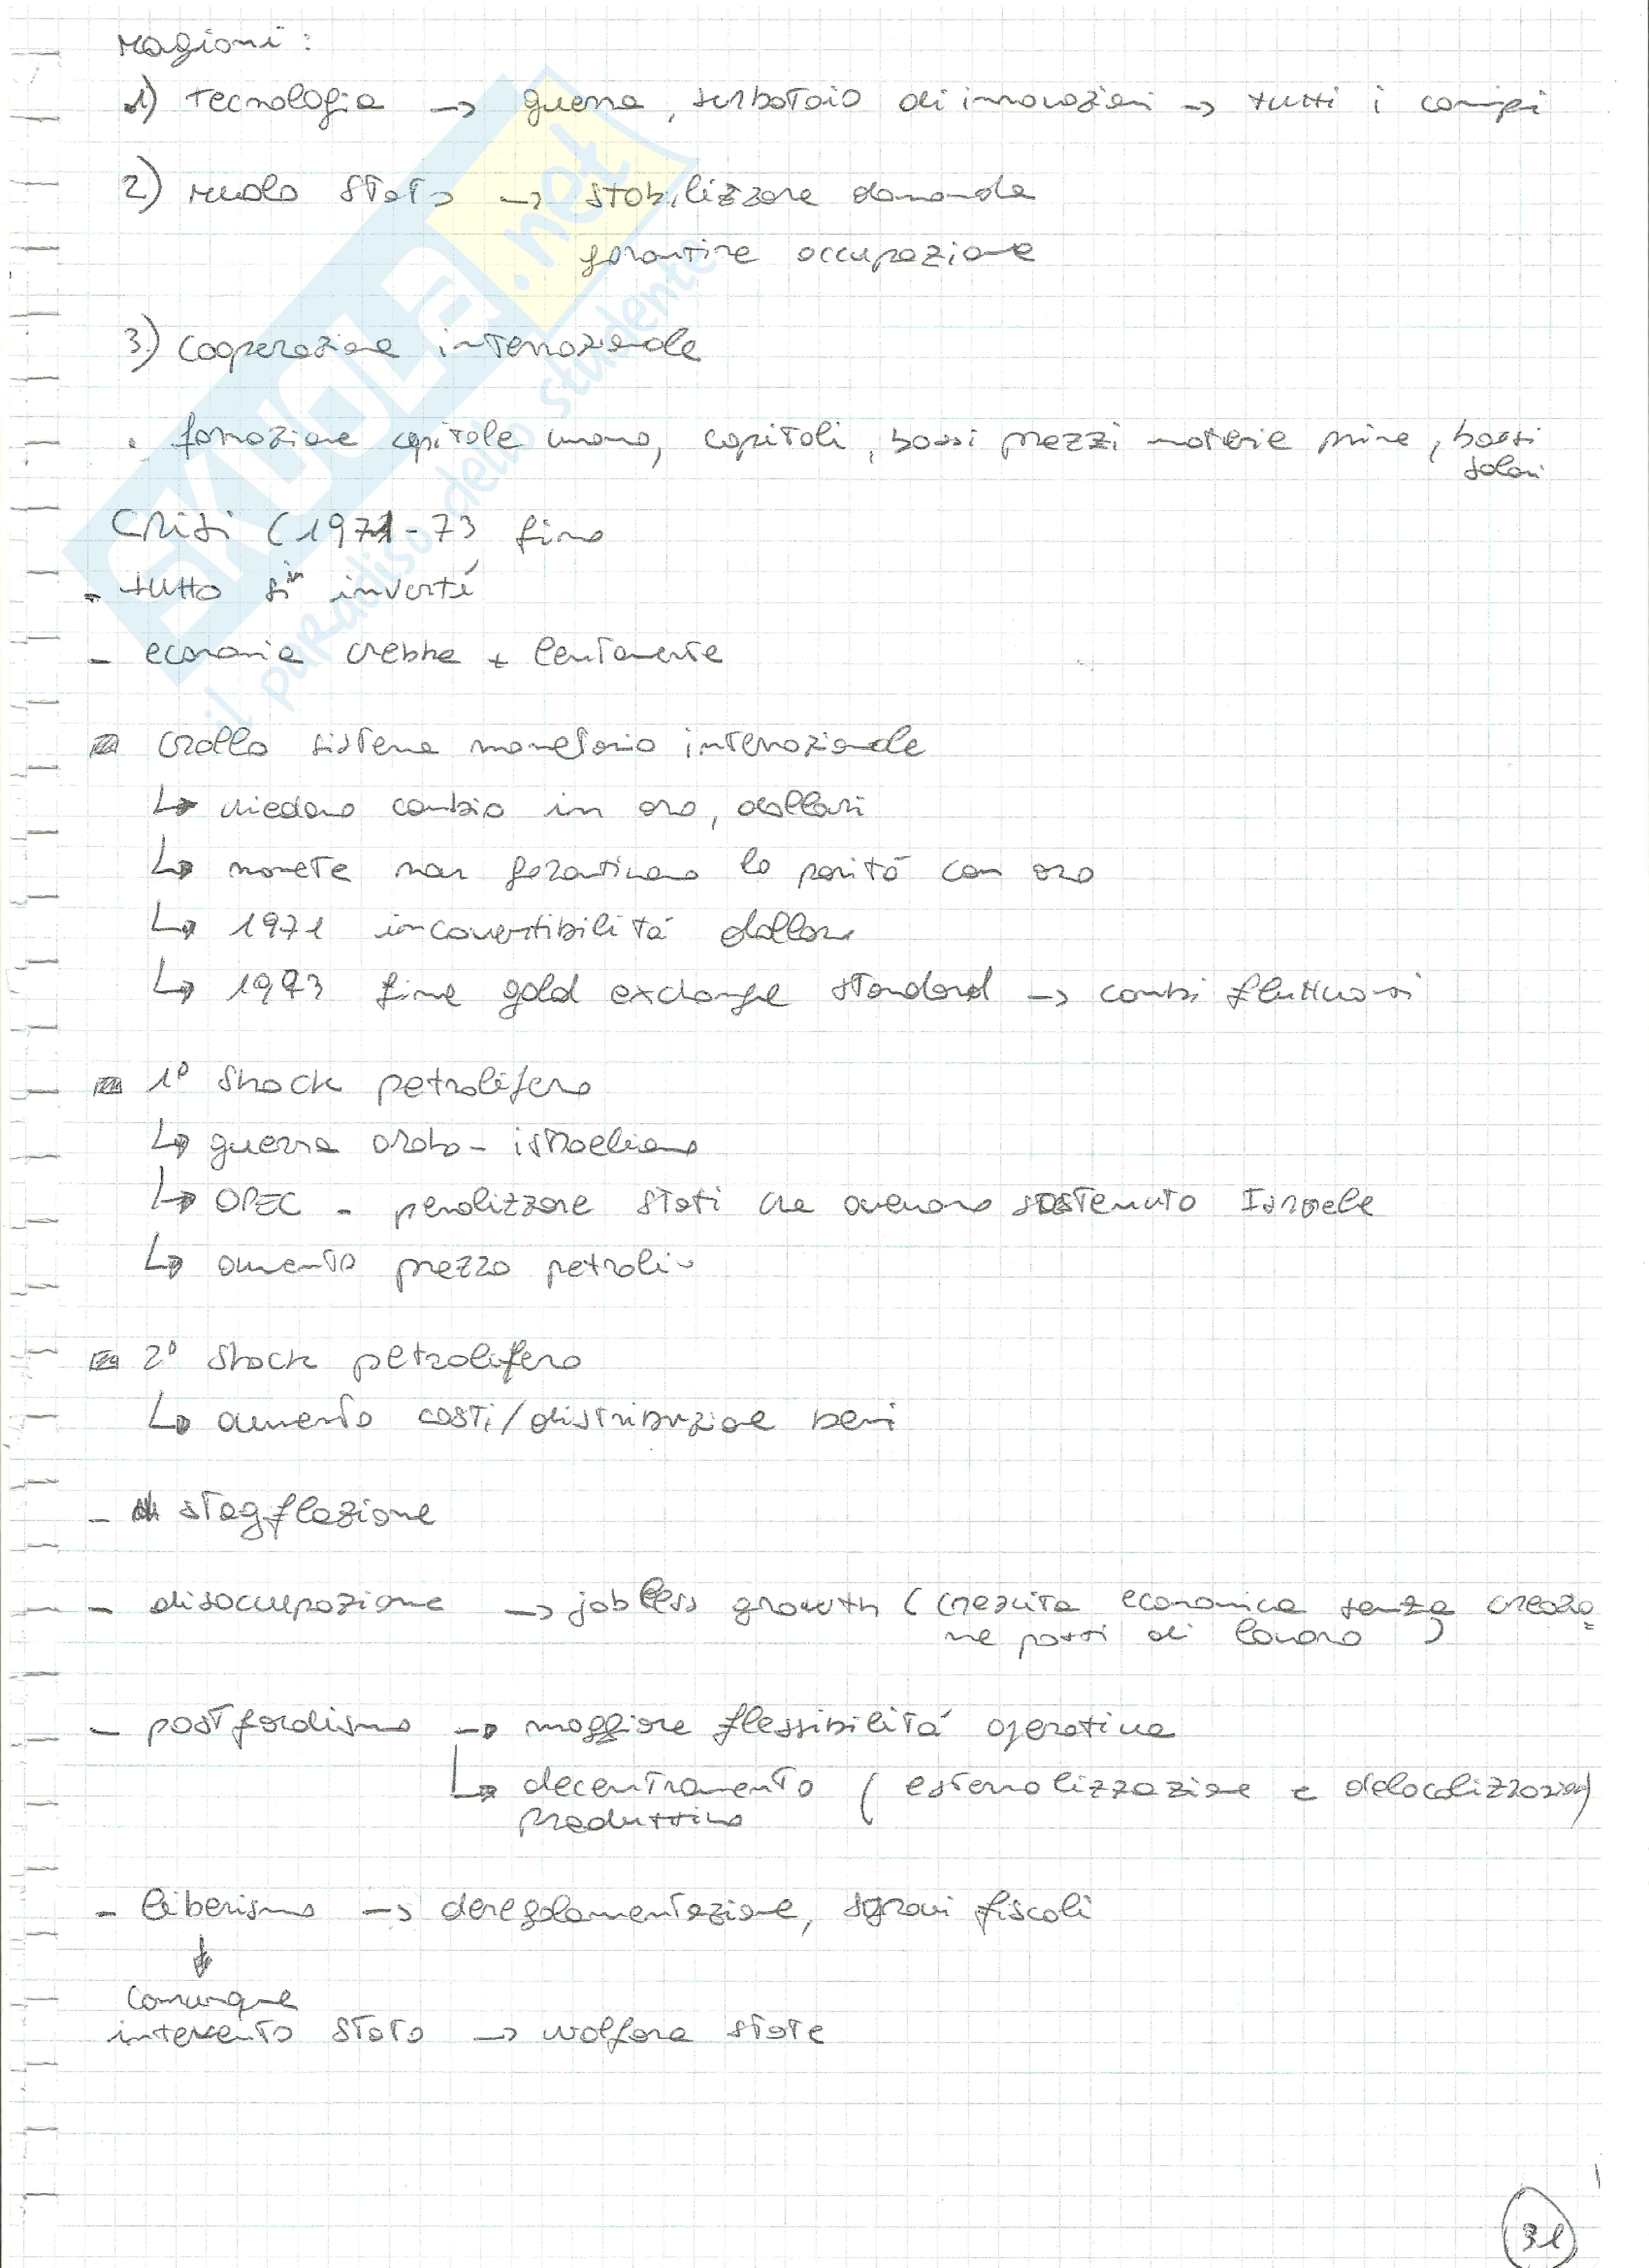 ragioni:
1) tecnologia -> guerra, serbatoio di innovazioni -> tutti i campi
2) ruolo stato -> stabilizzare domanda
garantire occupazione
3) cooperazione internazionale
. formazione capitale umano, capitali, bassi prezzi materie prime, bassi
salari
Crisi (1971-73 fine
- tutto si invertì
- economia crebbe + lentamente
crollo sistema monetario internazionale
↳ chiedono cambio in oro, dollari
↳ monete non garantivano la parità con oro
↳ 1971 inconvertibilità dollaro
↳ 1973 fine gold exchange standard -> cambi fluttuanti
1° shock petrolifero
↳ guerra arabo-israeliana
↳ OPEC - penalizzare stati che avevano sostenuto Israele
↳ aumento prezzo petrolio
2° shock petrolifero
↳ aumento costi/distribuzione beni
- stagflazione
- disoccupazione -> jobless growth (crescita economica senza creazio=
ne posti di lavoro)
- postfordismo -> maggiore flessibilità operativa
↳ decentramento (esternalizzazione e delocalizzazione)
produttivo
- liberismo -> deregolamentazione, sgravi fiscali
↓
comunque
intervento stato -> wolfare state
31
SKUOLA.net
il paradiso dello studente